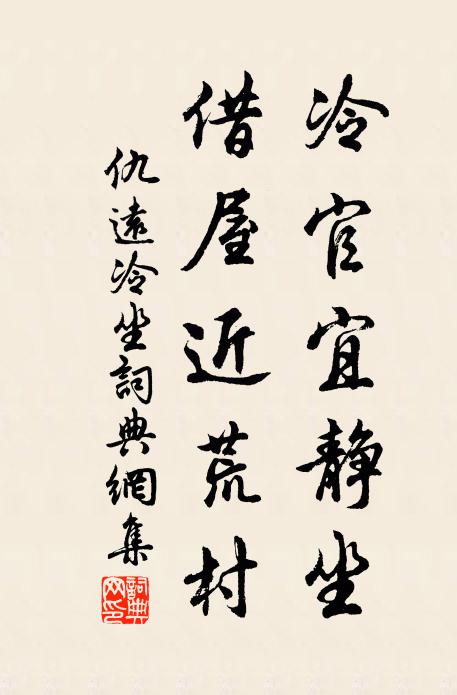 冷官宜静坐
借屋近荒村
仇遠冷坐詞典網集
詞典网印